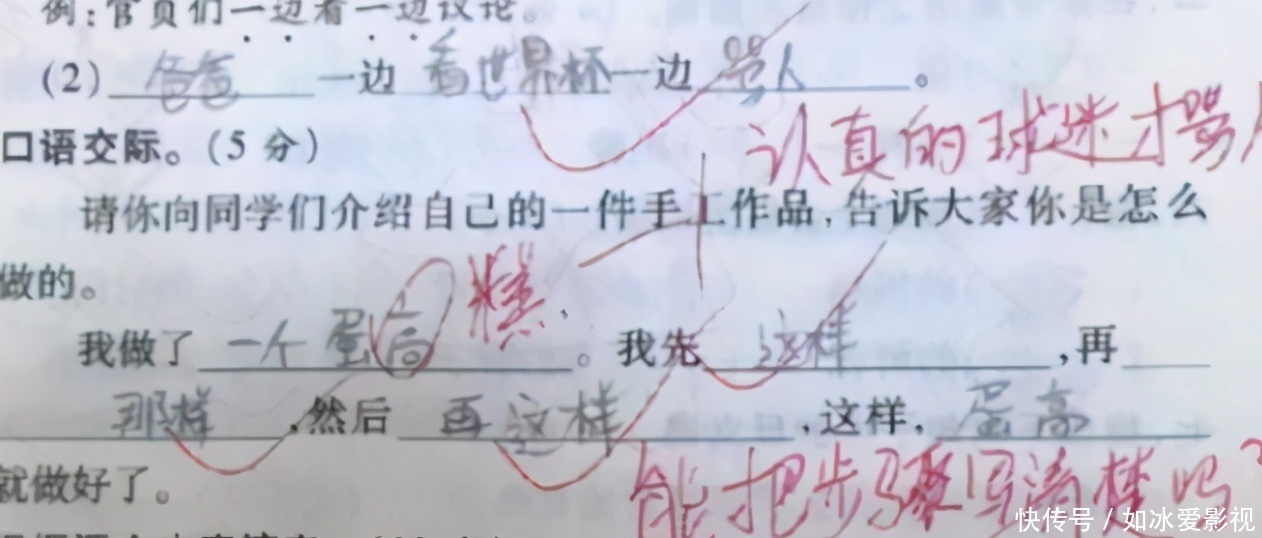 例:官员们一边看一边议论。
(2) 爸爸 一边 看世界杯 一边 骂人 。
认真的球迷才骂人
口语交际。(5 分)
请你向同学们介绍自己的一件手工作品,告诉大家你是怎么
做的。
糕
我做了 一个蛋高 。我先 这样 ,再
那样 ,然后 再这样 ,这样, 蛋高
就做好了。
能把步骤写清楚吗?
快传号 / 如冰爱影视